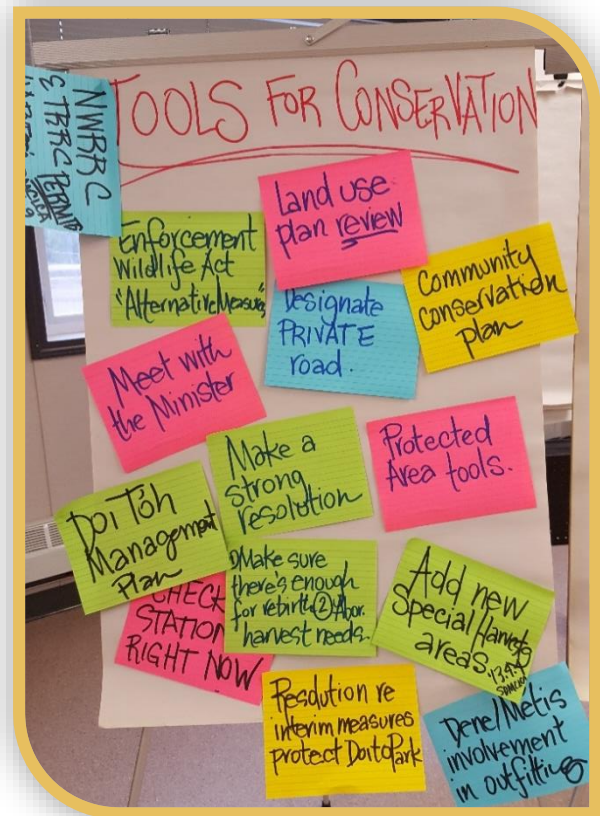 TOOLS FOR CONSERVATION
NWRRC
& TRRC PERMIT
Land use
plan review
Enforcement
Wildlife Act
"Alternative Measures"
Designate
PRIVATE
road.
Community
conservation
plan
Meet with
the Minister
Make a
strong
resolution
Protected
Area tools.
Doi Tóh
Management
Plan
①Make sure
there's enough
for rebirth ② Abor.
harvest needs.
Add new
Special Harvest
areas.
CHECK
STATION
RIGHT NOW
Resolution re
interim measures
protect Doito Park
Dene/Metis
involvement
in outfitting